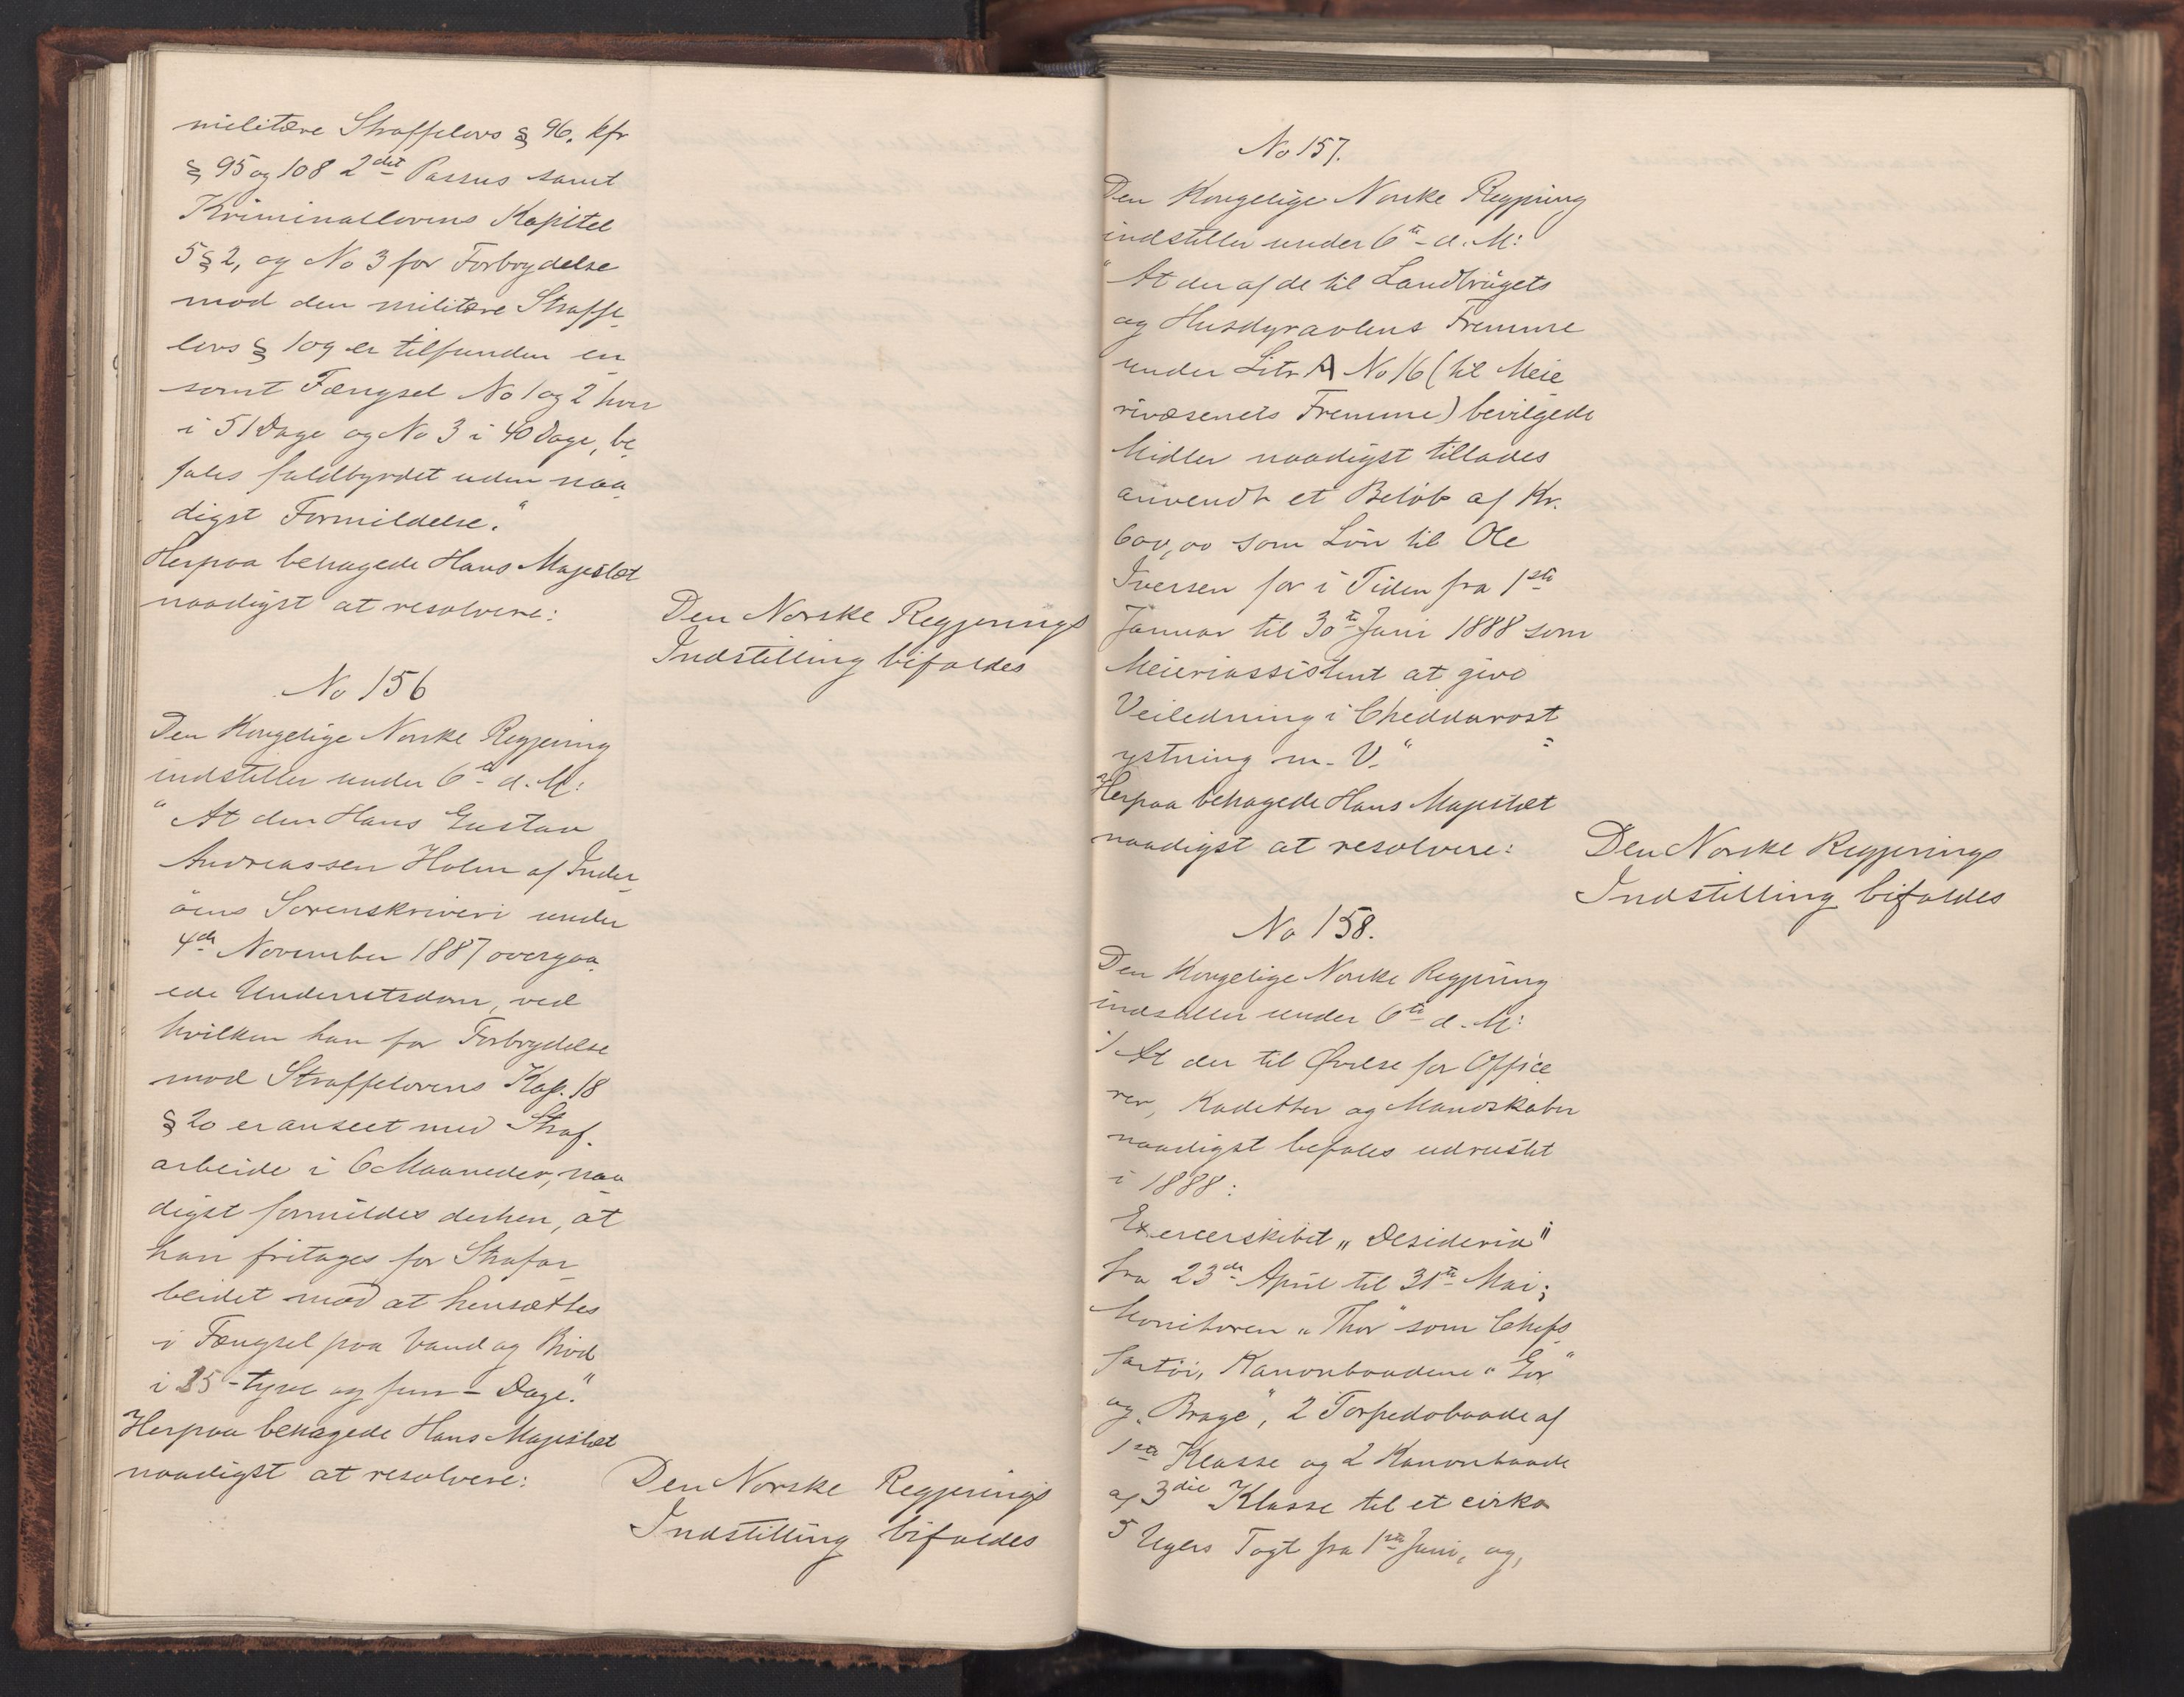 militære Straffelovs § 96. kfr
§ 95 og 108 2det Passus samt
Kriminallovens Kapitel
5 § 2, og No 3 for Forbrydelse
mod den militære Straffe-
lovs § 109 er tilfunden en
somt Fængsel No 1 og 2 hver
i 51 Dage og No 3 i 40 Dage, be-
fales fuldbyrdet uden naa-
digst Formildelse."
Herpaa behagede Hans Majestæt
naadigst at resolvere:
Den Norske Regjerings
Indstilling bifaldes
No 156
Den Kongelige Norske Regjering
indstiller under 6te d. M:
"At den Hans Gustav
Andreassen Holm af Inder-
öens Sorenskriveri under
4de November 1887 overgaa-
ede Underretsdom, ved
hvilken han for Forbrydelse
mod Straffelovens Kap. 18
§ 20 er anseet med Straf-
arbeide i 6 Maaneder, naa-
digst formildes derhen, at
han fritages for Strafar-
beidet mod at hensættes
i Fængsel paa Vand og Bröd
i 25 - tyve og fem - Dage."
Herpaa behagede Hans Majestæt
naadigst at resolvere:
Den Norske Regjerings
Indstilling bifaldes
No 157.
Den Kongelige Norske Regjering
indstiller under 6te d. M:
"At der af de til Landbrugets
og Husdyravlens Fremme
under Litr A No 16 (til Meie
rivæsenets Fremme) bevilgede
Midler naadigst tillades
anvendt et Belöb af Kr.
600,00 som Lön til Ole
Iversen for i Tiden fra 1ste
Januar til 30te Juni 1888 som
Meieriassistent at give
Veiledning i Cheddarost
ystning m. V."
Herpaa behagede Hans Majestæt
naadigst at resolvere:
Den Norske Regjerings
Indstilling bifaldes
No 158.
Den Kongelige Norske Regjering
indstiller under 6te d. M:
1/ At der til Øvelse for Office
rer, Kadetter og Mandskaber
naadigst befales udrustet
i 1888:
Exercerskibet „Desideria"
fra 23de April til 31te Mai;
Monitoren „Thor" som Chefs-
fartöi, Kanonbaadene "Gor"
og „Brage", 2 Torpedobaade af
1ste Klasse og 2 Kanonbaade
af 3die Klasse til et cirka
5 Ugers Togt fra 1ste Juni, og,